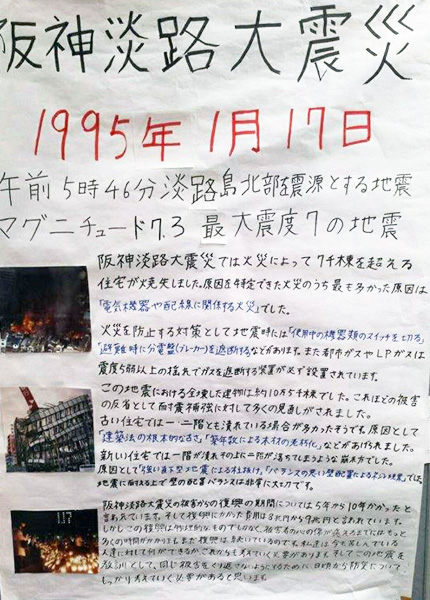 阪神淡路大震災
1995年1月17日
午前5時46分淡路島北部を震源とする地震
マグニチュード7.3 最大震度7の地震
阪神淡路大震災では火災によって7千棟を超える
住宅が焼失しました。原因を特定できた火災のうち最も多かった原因は
「電気機器や配線に関係する火災」でした。
火災を防止する対策として地震時には「使用中の機器類のスイッチを切る」
「避難時に分電盤(ブレーカー)を遮断する」などがあります。また都市ガスやLPガスは
震度5弱以上の揺れでガスを遮断する装置が必ず設置されています。
この地震における全壊した建物は約10万5千棟でした。これほどの被害
の反省として耐震補強に対して多くの見直しがされました。
古い住宅では一・二階とも潰れている場合が多かったそうです。原因として
「建築法の根本的な古さ」「築年数による木材の老朽化」などがあげられました。
新しい住宅では一階が潰れその上に二階が落ちてしまうような崩れ方でした。
原因として「強い直下型地震による柱抜け」「バランスの悪い壁配置によるネジレ現象」では、
地震に耐える上で壁の配置バランスは非常に大切です。
阪神淡路大震災の被害からの復興の期間については5年から10年かかったと
言われています。そして復興にかかった費用は8兆円から9兆円と言われています。
しかしこの復興は物理的なものでしかなく、被害者の心の傷が癒えるまでにはもっと
多くの時間がかかります。まだ復興は続いているのです。私達は今も苦しんでいる
人達に対して何ができるか、これからも考えていく必要があります。そしてこの地震を
教訓として、同じ被害をくり返さないようにするために日頃から防災について
しっかり考えていく必要があると思います。
1.17